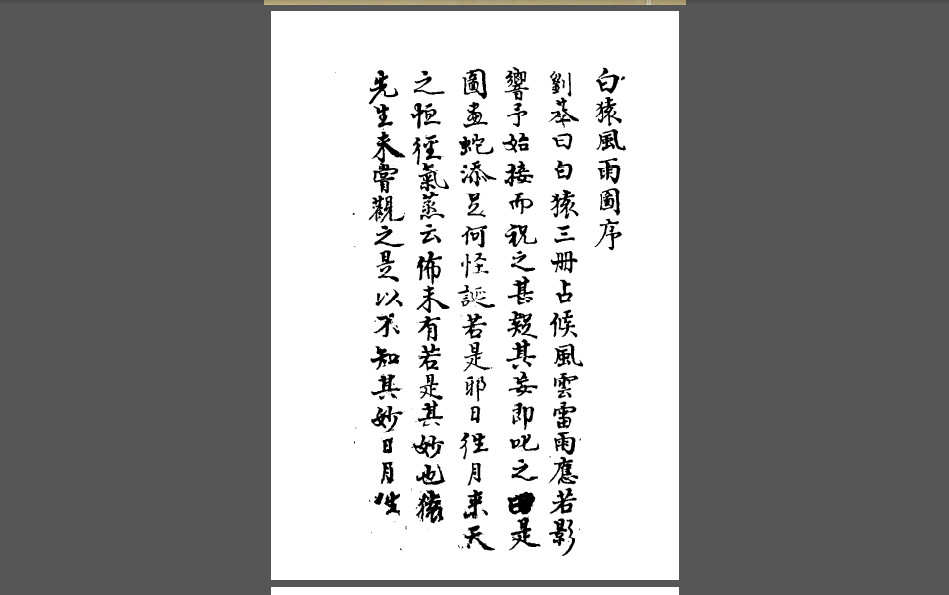 白猿風雨圖序
劉基曰白猿三册占候風雲雷雨應若影
響予始接而視之甚疑其妄即叱之曰是
圖畫蛇添足何怪誕若是耶日徃月来天
之恒徑氣蒸云佈未有若是其妙也猿
先生未嘗觀之是以不知其妙日月